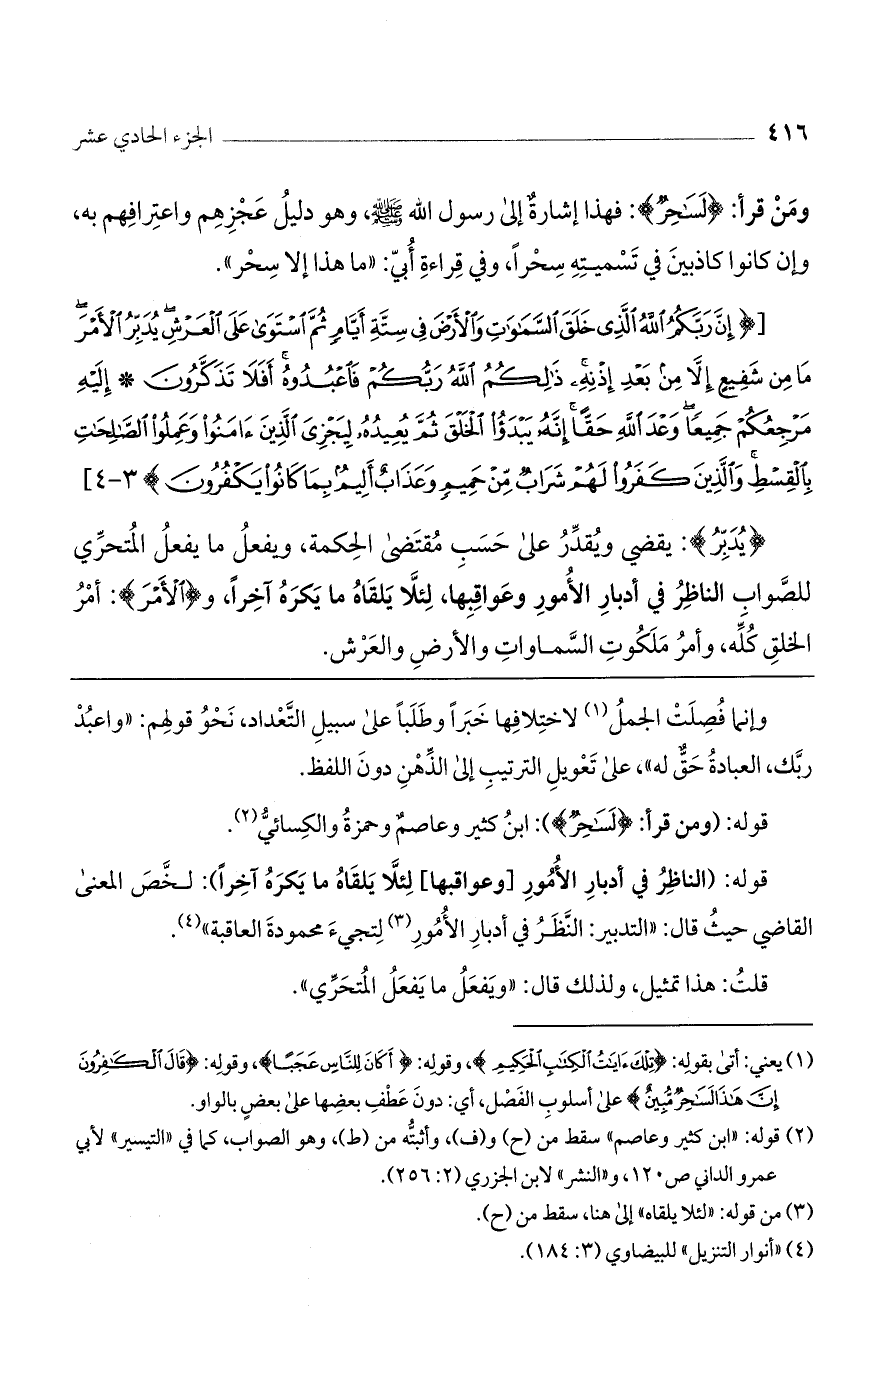 ٤١٦ الجزء الحادي عشر
ومَنْ قرأ: ﴿لَسَٰحِرٌ﴾: فهذا إشارةٌ إلىٰ رسول الله ﷺ، وهو دليلُ عَجْزِهِم واعتِرافِهم به،
وإن كانوا كاذبينَ في تَسْميتِهِ سِحْراً، وفي قِراءةِ أُبيّ: «ما هذا إلا سِحْر».
[﴿إِنَّ رَبَّكُمُ ٱللَّهُ ٱلَّذِى خَلَقَ ٱلسَّمَٰوَٰتِ وَٱلْأَرْضَ فِى سِتَّةِ أَيَّامٍ ثُمَّ ٱسْتَوَىٰ عَلَى ٱلْعَرْشِۖ يُدَبِّرُ ٱلْأَمْرَۖ
مَا مِن شَفِيعٍ إِلَّا مِنۢ بَعْدِ إِذْنِهِۦۚ ذَٰلِكُمُ ٱللَّهُ رَبُّكُمْ فَٱعْبُدُوهُۚ أَفَلَا تَذَكَّرُونَ * إِلَيْهِ
مَرْجِعُكُمْ جَمِيعًاۖ وَعْدَ ٱللَّهِ حَقًّاۚ إِنَّهُۥ يَبْدَؤُا۟ ٱلْخَلْقَ ثُمَّ يُعِيدُهُۥ لِيَجْزِىَ ٱلَّذِينَ ءَامَنُوا۟ وَعَمِلُوا۟ ٱلصَّٰلِحَٰتِ
بِٱلْقِسْطِۚ وَٱلَّذِينَ كَفَرُوا۟ لَهُمْ شَرَابٌ مِّنْ حَمِيمٍ وَعَذَابٌ أَلِيمٌۢ بِمَا كَانُوا۟ يَكْفُرُونَ﴾ ٣-٤]
﴿يُدَبِّرُ﴾: يقضي ويُقدِّرُ علىٰ حَسَبِ مُقتَضىٰ الحِكمة، ويفعلُ ما يفعلُ المُتحرِّي
للصَّوابِ الناظِرُ في أدبارِ الأُمورِ وعَواقِبِها، لِئلَّا يَلقَاهُ ما يَكرَهُ آخِراً، و﴿ٱلْأَمْرَ﴾: أمْرُ
الخلقِ كُلِّه، وأمرُ مَلَكُوتِ السَّماواتِ والأرضِ والعَرْش.
وإنما فُصِلَتْ الجملُ(١) لاختِلافِها خَبَراً وطَلَباً علىٰ سبيلِ التَّعْداد، نَحْوُ قولِهم: «واعبُدْ
ربَّك، العبادةُ حَقٌّ له»، علىٰ تَعْويلِ الترتيبِ إلىٰ الذِّهْنِ دونَ اللفظ.
قوله: (ومن قرأ: ﴿لَسَٰحِرٌ﴾): ابنُ كثير وعاصمٌ وحمزةُ والكِسائيُّ(٢).
قوله: (الناظِرُ في أدبارِ الأُمُورِ [وعواقبها] لِئلَّا يَلقَاهُ ما يَكرَهُ آخِراً): لـخَّصَ المعنىٰ
القاضي حيثُ قال: «التدبير: النَّظَرُ في أدبارِ الأُمُورِ(٣) لِتجيءَ محمودةَ العاقبة»(٤).
قلتُ: هذا تمثيل، ولذلك قال: «ويَفعَلُ ما يَفعَلُ المُتحَرِّي».
(١) يعني: أتىٰ بقوله: ﴿تِلْكَ ءَايَٰتُ ٱلْكِتَٰبِ ٱلْحَكِيمِ﴾، وقولِه: ﴿أَكَانَ لِلنَّاسِ عَجَبًا﴾، وقولِه: ﴿قَالَ ٱلْكَٰفِرُونَ
إِنَّ هَٰذَا لَسَٰحِرٌ مُّبِينٌ﴾ علىٰ أسلوبِ الفَصْل، أي: دونَ عَطْفِ بعضِها علىٰ بعضٍ بالواو.
(٢) قوله: «ابن كثير وعاصم» سقط من (ح) و(ف)، وأثبتُّه من (ط)، وهو الصواب، كما في «التيسير» لأبي
عمرو الداني ص١٢٠، و«النشر» لابن الجزري (٢: ٢٥٦).
(٣) من قوله: «لئلا يلقاه» إلىٰ هنا، سقط من (ح).
(٤) «أنوار التنزيل» للبيضاوي (٣: ١٨٤).